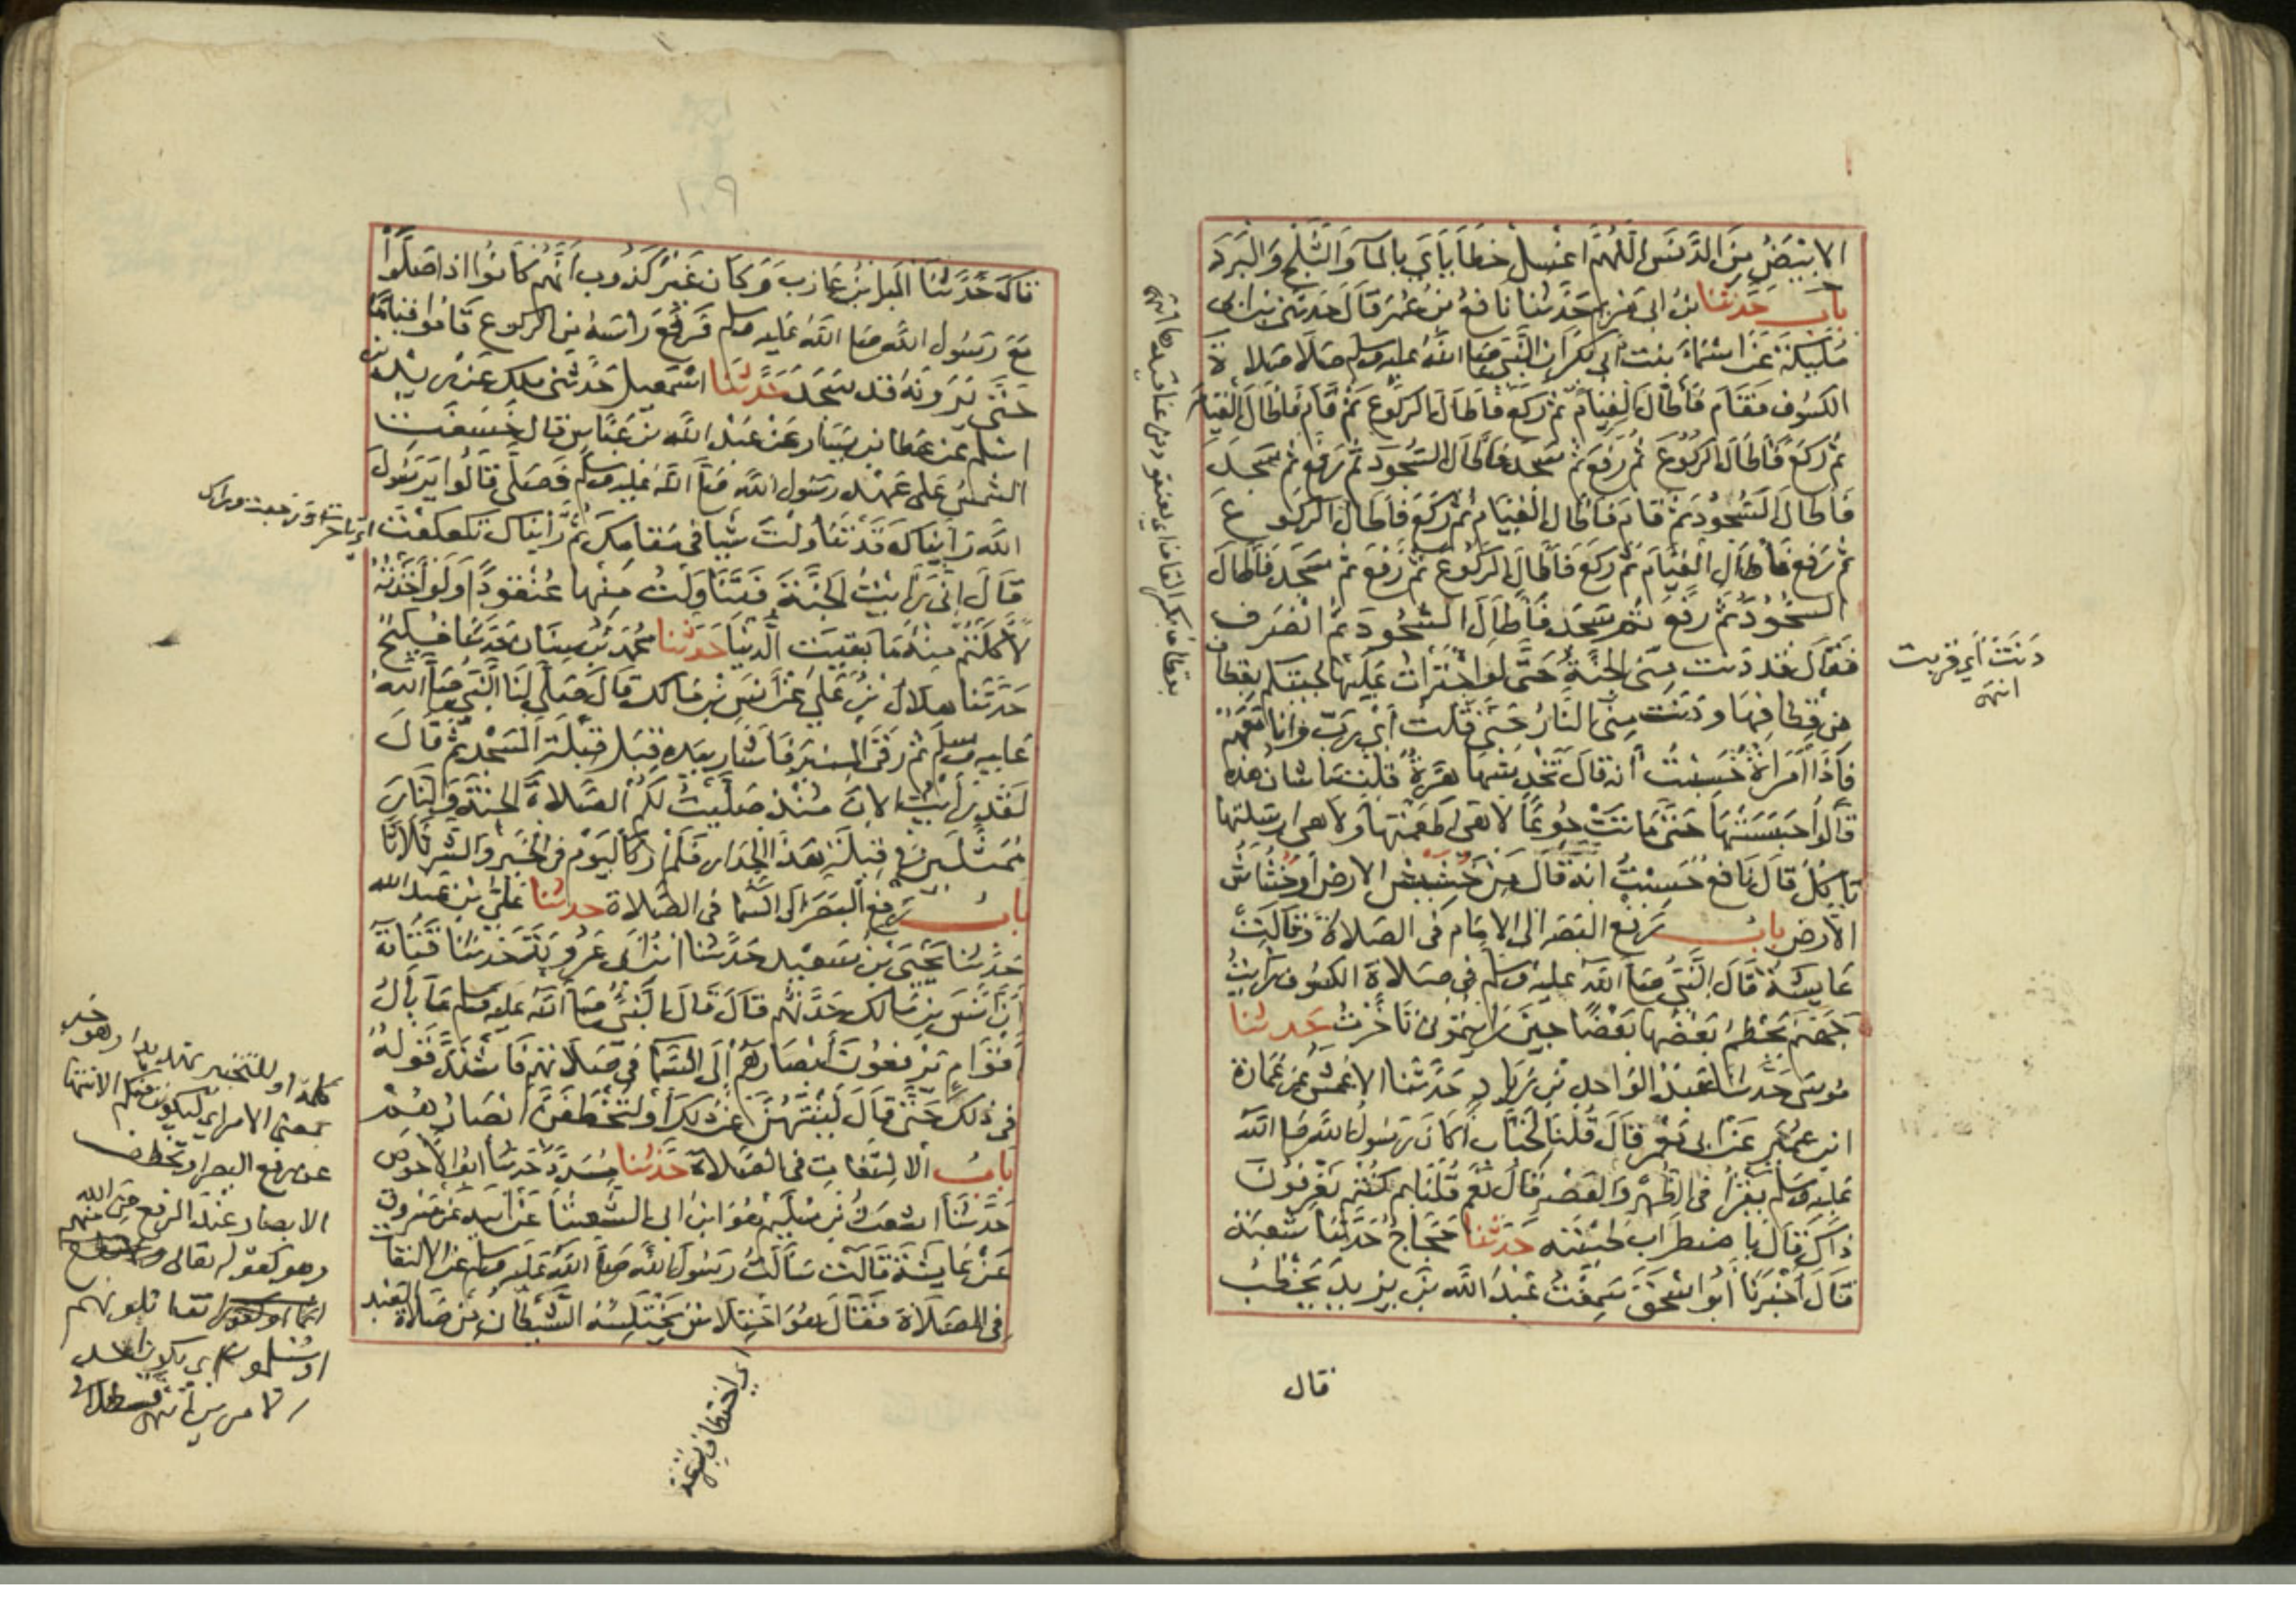 الابيض من الدنس اللهم اغسل خطاياي بالماء والثلج والبرد
باب حدثنا بن ابي مريم حدثنا نافع بن عمر قال حدثني بن ابي
مليكة عن اسماء بنت ابي بكر ان النبي صلى الله عليه وسلم صلى صلاة
الكسوف فقام فأطال القيام ثم ركع فأطال الركوع ثم قام فأطال القيام
ثم ركع فأطال الركوع ثم رفع ثم سجد فأطال السجود ثم رفع ثم سجد
فأطال السجود ثم قام فأطال القيام ثم ركع فأطال الركوع
ثم رفع فأطال القيام ثم ركع فأطال الركوع ثم رفع ثم سجد فأطال
السجود ثم رفع ثم سجد فأطال السجود ثم انصرف
فقال قد دنت مني الجنة حتى لو اجترأت عليها لجئتكم بقطاف
من قطافها ودنت مني النار حتى قلت أي رب وانا معهم
فاذا امرأة حسبت أنه قال تخدشها هرة قلت ما شان هذه
قالوا حبستها حتى ماتت جوعا لا هي اطعمتها ولا هي ارسلتها
تأكل قال نافع حسبت انه قال من خشيش الارض او خشاش
الأرض باب رفع البصر الى الامام في الصلاة وقالت
عايشة قال النبي صلى الله عليه وسلم في صلاة الكسوف رأيت
جهنم يحطم بعضها بعضا حين رايتموني تأخرت حدثنا
موسى حدثنا عبد الواحد بن زياد حدثنا الاعمش عن عمارة
ابن عمير عن ابي معمر قال قلنا لخباب أكان رسول الله صلى الله
عليه وسلم يقرأ في الظهر والعصر قال نعم قلنا بم كنتم تعرفون
ذاك قال باضطراب لحيته حدثنا حجاج حدثنا شعبة
قال أخبرنا أبو اسحق سمعت عبد الله بن يزيد يخطب
قال
دنت أي قربت
انتهى
١٠٩
قال حدثنا البراء بن عازب وكان غير كذوب انهم كانوا اذا صلوا
مع رسول الله صلى الله عليه وسلم فرفع رأسه من الركوع قاموا قياما
حتى يرونه قد سجد حدثنا اسمعيل حدثني ملك عن زيد بن
اسلم عن عطا بن يسار عن عبد الله بن عباس قال خسفت
الشمس على عهد رسول الله صلى الله عليه وسلم فصلى قالوا يرسول
الله رأيناك تناولت شيا في مقامك ثم رأيناك تكعكعت
قال اني رأيت الجنة فتناولت منها عنقودا ولو اخذته
لأكلتم منه ما بقيت الدنيا حدثنا محمد بن سنان حدثنا فليح
حدثنا هلال بن علي عن أنس بن مالك قال صلى لنا النبي صلى الله
عليه وسلم ثم رقى المنبر فأشار بيده قبل قبلة المسجد ثم قال
لقد رأيت الان منذ صليت لكم الصلاة الجنة والنار
ممثلتين في قبلة هذا الجدار فلم أر كاليوم في الخير والشر ثلاثا
باب رفع البصر الى السما في الصلاة حدثنا علي بن عبد الله
حدثنا يحيى بن سعيد حدثنا ابن ابي عروبة حدثنا قتادة
أن أنس بن مالك حدثهم قال قال النبي صلى الله عليه وسلم ما بال
أقوام يرفعون أبصارهم إلى السما في صلاتهم فاشتد قوله
في ذلك حتى قال لينتهن عن ذلك أو لتخطفن ابصارهم
باب الالتفات في الصلاة حدثنا مسدد حدثنا ابو الأحوص
حدثنا اشعث بن سليم هو ابن ابي الشعثا عن أبيه عن مسروق
عن عايشة قالت سألت رسول الله صلى الله عليه وسلم عن الالتفات
في الصلاة فقال هو اختلاس يختلسه الشيطان من صلاة العبد
كلمة او للتخيير تهديدا وهو خبر
بمعنى الامر اي ليكون منكم الانتها
عن رفع البصر او تخطف
الابصار عند الرفع من الله
وهو كقوله تعالى